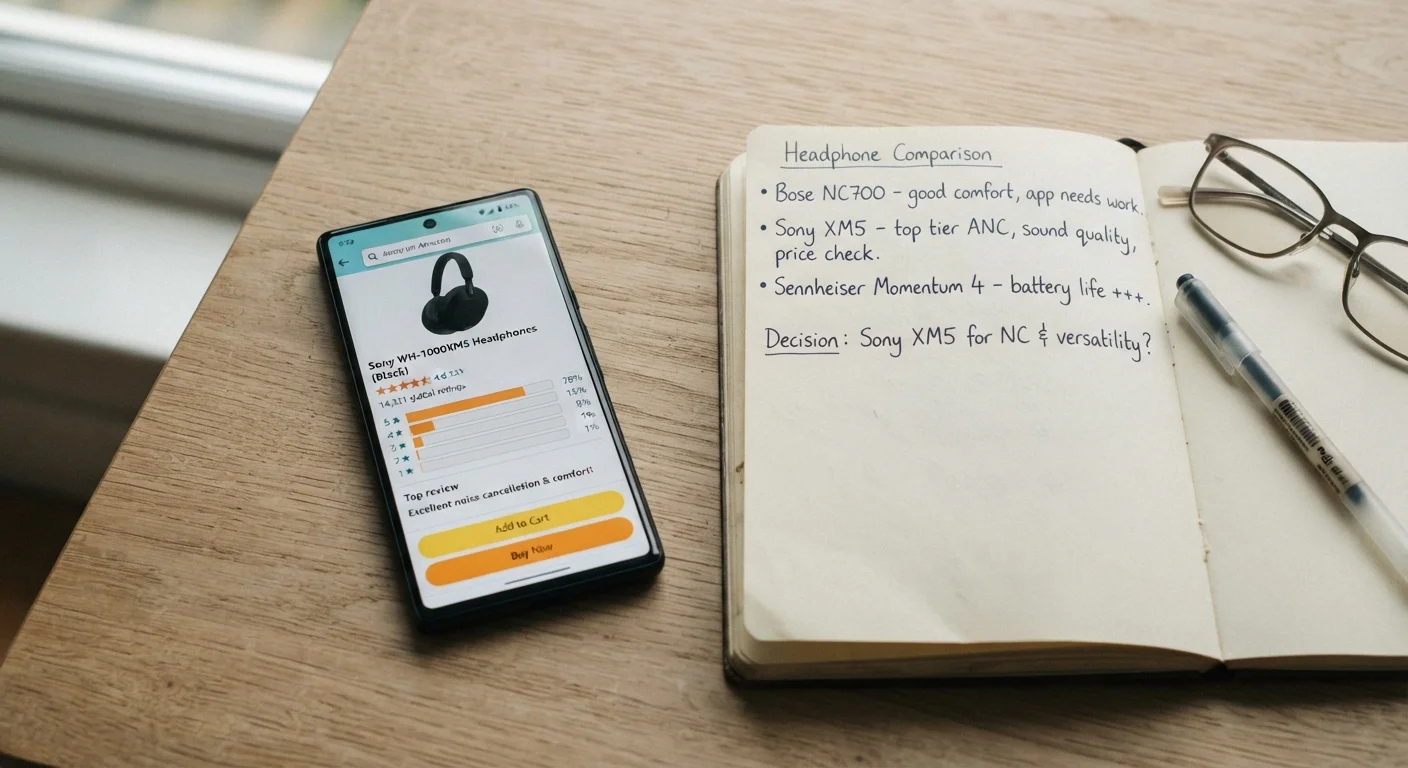 Sony WH-1000XM5 Headphones
(Black)
5
4
Top review
Excellent noise cancellation & comfort!
Add to Cart
Buy Now
Headphone Comparison
• Bose NC700 – good comfort, app needs work.
• Sony XM5 – top tier ANC, sound quality,
price check.
• Sennheiser Momentum 4 – battery life +++.
Decision: Sony XM5 for NC & versatility?